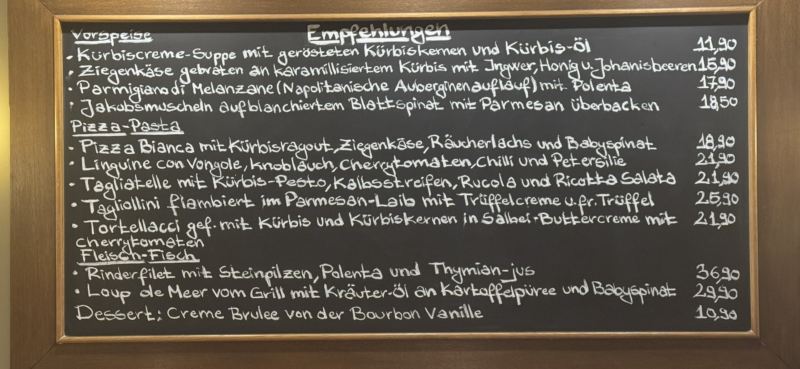 Vorspeise Empfehlungen
• Kürbiscreme-Suppe mit gerösteten Kürbiskernen und Kürbis-Öl 11,90
• Ziegenkäse gebraten an karamillisiertem Kürbis mit Ingwer, Honig u. Johanisbeeren 15,90
• Parmigiano di Melanzane (Napolitanische Auberginenauflauf) mit Polenta 17,90
• Jakobsmuscheln auf blanchiertem Blattspinat mit Parmesan überbacken 18,50
Pizza-Pasta
• Pizza Bianca mit Kürbisragout, Ziegenkäse, Räucherlachs und Babyspinat 18,90
• Linguine con Vongole, Knoblauch, Cherrytomaten, Chilli und Petersilie 21,90
• Tagliatelle mit Kürbis-Pesto, Kalbsstreifen, Rucola und Ricotta Salata 21,90
• Tagliollini flambiert im Parmesan-Laib mit Trüffelcreme u. fr. Trüffel 25,90
• Tortellacci gef. mit Kürbis und Kürbiskernen in Salbei-Buttercreme mit 21,90
Cherrytomaten
Fleisch-Fisch
• Rinderfilet mit Steinpilzen, Polenta und Thymian-jus 36,90
• Loup de Meer vom Grill mit Kräuter-Öl an Kartoffelpüree und Babyspinat 29,90
Dessert: Creme Brulee von der Bourbon Vanille 10,90